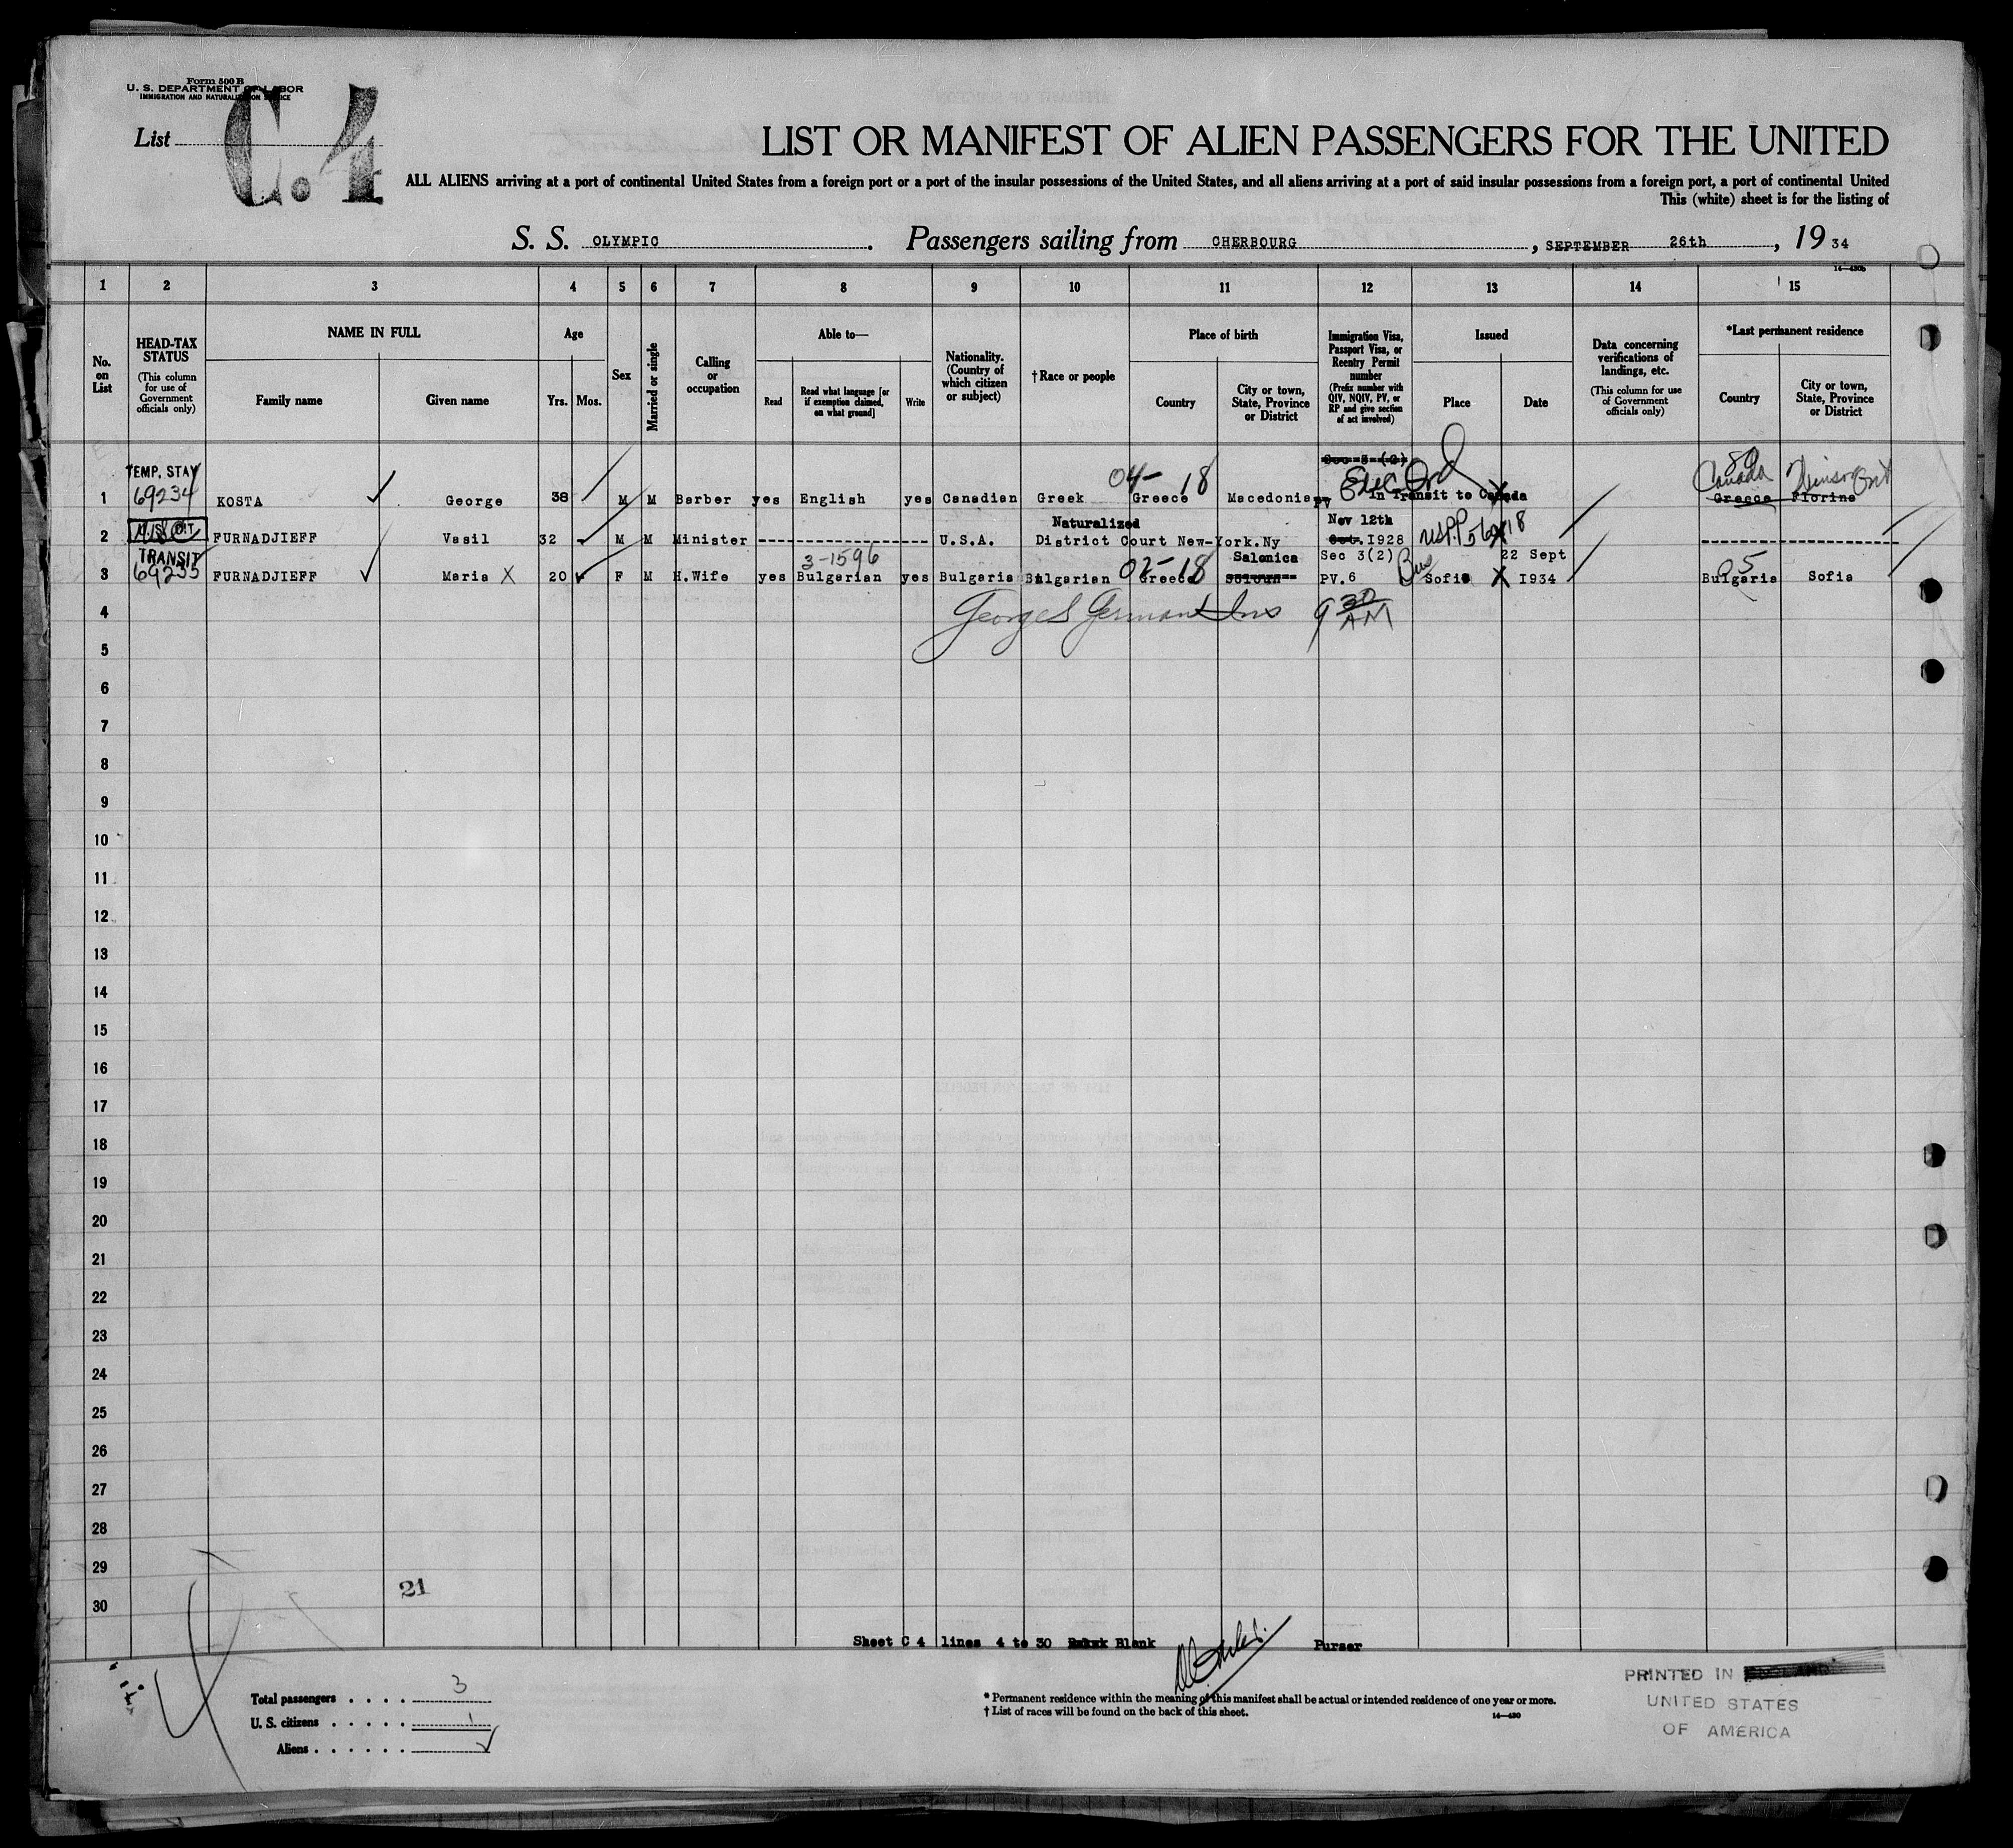 Form 500 B
U. S. DEPARTMENT OF LABOR
IMMIGRATION AND NATURALIZATION SERVICE
List C. 4
LIST OR MANIFEST OF ALIEN PASSENGERS FOR THE UNITED
ALL ALIENS arriving at a port of continental United States from a foreign port or a port of the insular possessions of the United States, and all aliens arriving at a port of said insular possessions from a foreign port, a port of continental United
This (white) sheet is for the listing of
S. S. OLYMPIC. Passengers sailing from CHERBOURG, SEPTEMBER 26th, 19 34
14—430b
1 2 3 4 5 6 7 8 9 10 11 12 13 14 15
No. on List
HEAD-TAX STATUS (This column for use of Government officials only)
NAME IN FULL
Family name
Given name
Age
Yrs. Mos.
Sex
Married or single
Calling or occupation
Able to—
Read
Read what language [or if exemption claimed, on what ground]
Write
Nationality. (Country of which citizen or subject)
†Race or people
Place of birth
Country
City or town, State, Province or District
Immigration Visa, Passport Visa, or Reentry Permit number (Prefix number with QIV, NQIV, PV, or RP and give section of act involved)
Issued
Place
Date
Data concerning verifications of landings, etc. (This column for use of Government officials only)
*Last permanent residence
Country
City or town, State, Province or District
TEMP. STAY Sec 3 (2) 80
04- 18 Canada Windsor Ont
1 69234 KOSTA George 38 M M Barber yes English yes Canadian Greek Greece Macedonia PV In Transit to Canada Greece Florine
Naturalized Nov 12th
2 U.S. CIT. FURNADJIEFF Vasil 32 M M Minister U.S.A. District Court New-York.Ny Oct. 1928 USPP 56718
TRANSIT 3-1596 02-18 Salonica Sec 3(2) 22 Sept 05
3 69235 FURNADJIEFF Maria X 20 F M H.Wife yes Bulgarian yes Bulgaria Bulgarian Greece Soloun PV.6 Sofia I934 Bulgaria Sofia
4 George S German Ins 9 30 AM
5
6
7
8
9
10
11
12
13
14
15
16
17
18
19
20
21
22
23
24
25
26
27
28
29
21
30
Sheet C 4 lines 4 to 30 Blank Purser
Total passengers . . . . 3
U. S. citizens . . . . . 1
Aliens . . . . . .
* Permanent residence within the meaning of this manifest shall be actual or intended residence of one year or more.
† List of races will be found on the back of this sheet.
14—430
PRINTED IN ENGLAND
UNITED STATES
OF AMERICA